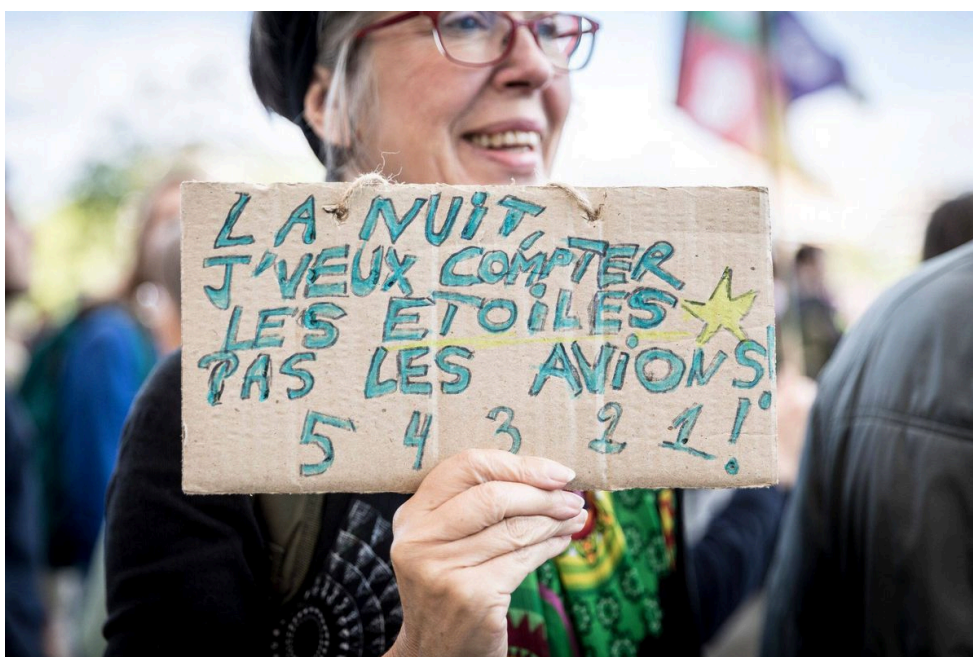 LA NUIT,
J'VEUX COMPTER
LES ETOILES
PAS LES AVIONS!
5 4 3 2 1!